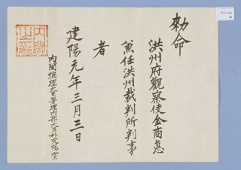 勅命
洪州府觀察使金商悳
兼任洪州裁判所判事
者
建陽元年三月三日
內閣總理大臣